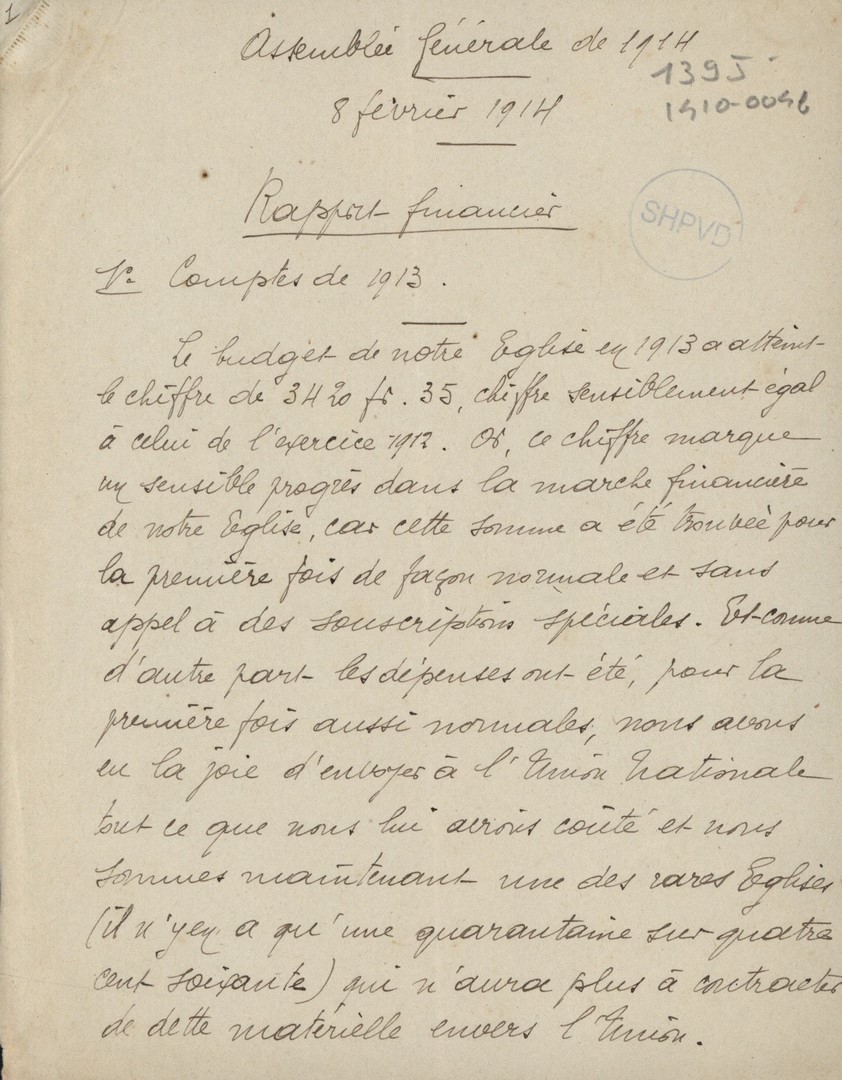 1
Assemblée Générale de 1914
1395
8 février 1914
1910-0096
Rapport financier
SHPVD
1º Comptes de 1913.
Le budget de notre Eglise en 1913 a atteint
le chiffre de 3420 fr. 35, chiffre sensiblement égal
à celui de l'exercice 1912. Or, ce chiffre marque
un sensible progrès dans la marche financière
de notre Eglise, car cette somme a été trouvée pour
la première fois de façon normale et sans
appel à des souscriptions spéciales. Et comme
d'autre part les dépenses ont été, pour la
première fois aussi normales, nous avons
eu la joie d'envoyer à l'Union Nationale
tout ce que nous lui avions coûté et nous
sommes maintenant une des rares Eglises
(il n'y en a qu'une quarantaine sur quatre
cent soixante) qui n'aura plus à contracter
de dette matérielle envers l'Union.